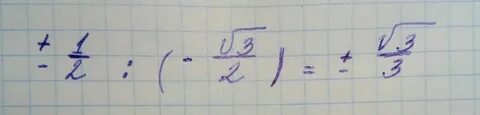 ± 1/2 : (- √3/2) = ± √3/3